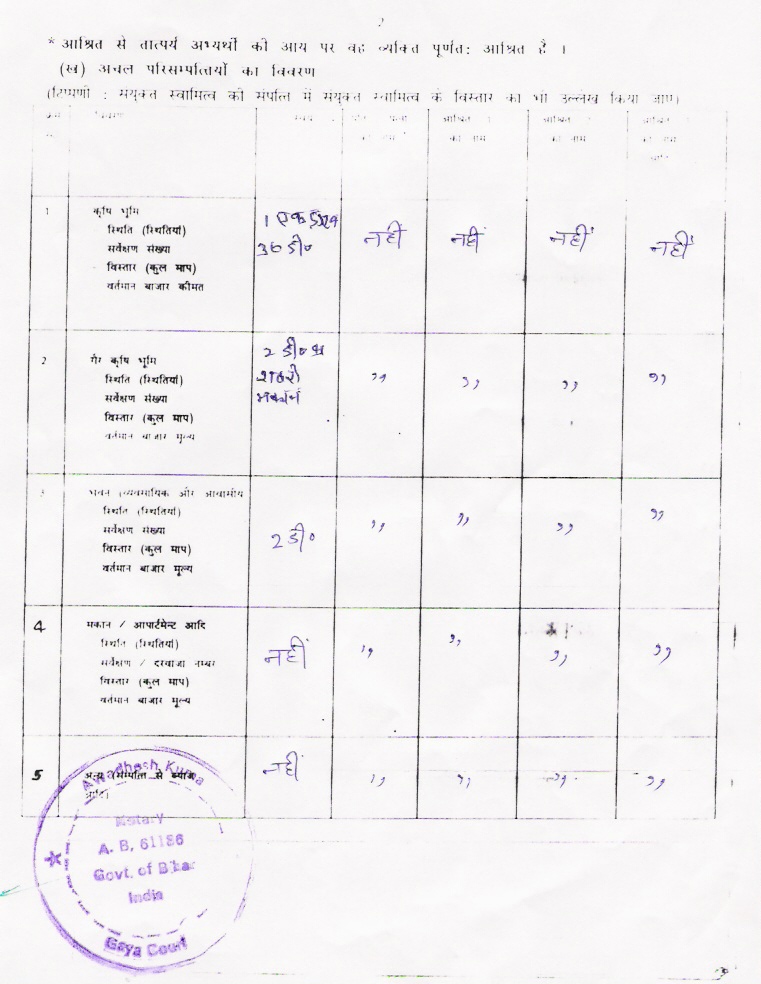 2
* आश्रित से तात्पर्य अभ्यर्थी की आय पर वह व्यक्ति पूर्णत: आश्रित है ।
(ख) अचल परिसम्पत्तियों का विवरण
(टिप्पणी : संयुक्त स्वामित्व की संपत्ति में संयुक्त स्वामित्व के विस्तार का भी उल्लेख किया जाए)
विवरण स्वयं आश्रित आश्रित आश्रित
का नाम का नाम का नाम
1 कृषि भूमि
स्थिति (स्थितियां)
सर्वेक्षण संख्या
विस्तार (कुल माप)
वर्तमान बाजार कीमत
1 एकड़
36 डी०
नहीं नहीं नहीं नहीं
2 गैर कृषि भूमि
स्थिति (स्थितियां)
सर्वेक्षण संख्या
विस्तार (कुल माप)
वर्तमान बाजार मूल्य
2 डी०
मकान
,, ,, ,, ,,
3 भवन (व्यवसायिक और आवासीय
स्थिति (स्थितियां)
सर्वेक्षण संख्या
विस्तार (कुल माप)
वर्तमान बाजार मूल्य
2 डी०
,, ,, ,, ,,
4 मकान / आपार्टमेन्ट आदि
स्थिति (स्थितियां)
सर्वेक्षण / दरवाजा नम्बर
विस्तार (कुल माप)
वर्तमान बाजार मूल्य
नहीं
,, ,, ,, ,,
5 अन्य (सम्पत्ति से ब्याज
आदि)
नहीं
,, ,, ,, ,,
Awadhesh Kumar
Notary
A. B. 61186
Govt. of Bihar
India
Gaya Court